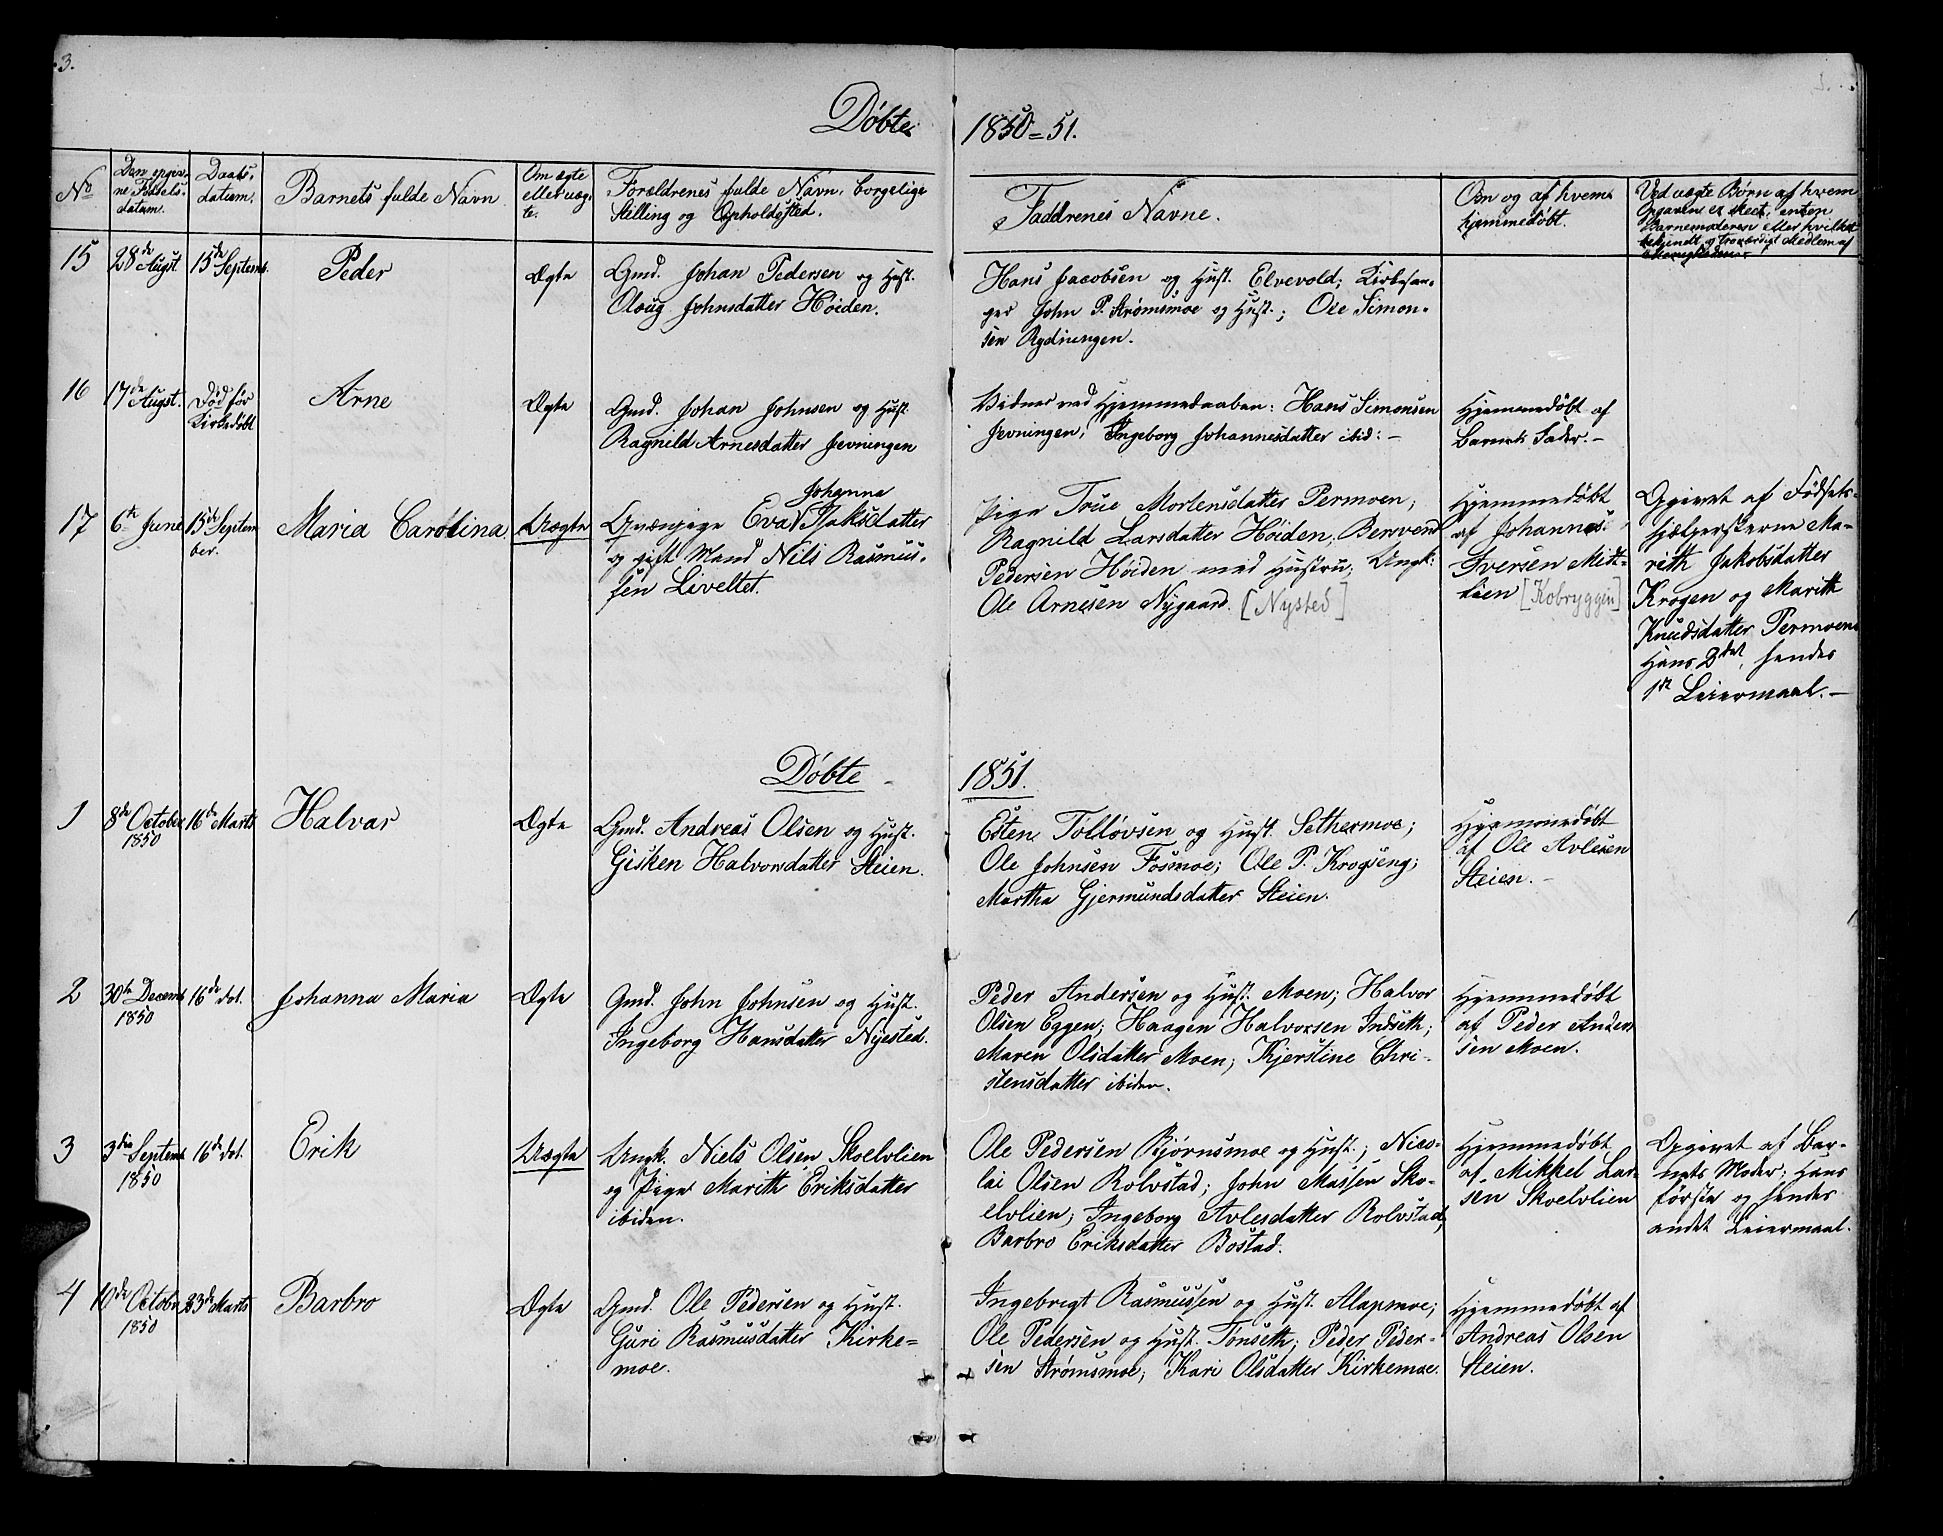 3.
Døbte 1850=51.
No
Den opgiv-
ne Fødsels-
datum.
Daabs-
datum.
Barnets fulde Navn
Om ægte
eller uæg-
te.
Forældrenes fulde Navn, borgelige
Stilling og Opholdssted.
Faddrenes Navne.
Om og af hvem
hjemmedøbt.
Ved uægte Børn af hvem
Opgaven er skeet, enten
Barnemoderen eller hvilket
bekjendt og troværdigt Medlem af
Menigheden
15
28de Augst
15de Septemb.
Peder
Ægte
Gmd. Johan Pedersen og Hust.
Oloug Johnsdatter Høiden.
Hans Jacobsen og Hust. Elvevold; Kirkesan-
ger John P. Strømsmoe og Hust.; Ole Simon-
sen Rydningen.
16
17de Augst.
Død før
Kirkedøbt
Arne
Ægte
Gmd. Johan Johnsen og Hust.
Ragnild Arnesdatter Jevningen
Vidner ved Hjemmedaaben: Hans Simonsen
Jevningen, Ingeborg Johannesdatter ibid: -
Hjemmedøbt af
Barnets Fader. -
17
6te June
15de Septem
ber.
Maria Carolina
Uægte
Johanna
Qvænpige Eva Isaksdatter
og gift Mand Nils Rasmus-
sen Liveltet.
Pige True Mortensdatter Permoen;
Ragnild Larsdatter Høiden; Berven
Pedersen Høiden med Hustru; Ungk:
Ole Arnesen Nygaard. [Nysted]
Hjemmedøbt
af Johannes
Iversen Midt-
lien [Kobryggen]
Opgivet af Fødsels-
hjelperskerne Ma-
rith Jakobsdatter
Krogen og Marith
Knudsdatter Permoen
Hans 2det, hendes
1ste Leiermaal. -
Døbte - 1851.
1
8de October
1850
16de Marts
Halvar
Ægte
Gmd. Andreas Olsen og Hust.
Gjesken Halvorsdatter Steien.
Esten Tolløvsen og Hust. Sethermoe;
Ole Johnsen Fosmoe; Ole P. Krogseng;
Martha Gjermundsdatter Steien.
Hjemmedøbt
af Ole Avlesen
Steien. -
2
30te Decemb
1850
16de dot.
Johanna Maria
Ægte
Gmd. John Johnsen og Hust.
Ingeborg Hansdatter Nysted.
Peder Andersen og Hust. Moen; Halvor
Olsen Eggen; Haagen Halvorsen Indseth;
Maren Olsdatter Moen; Kjerstine Chri-
stensdatter ibiden.
Hjemmedøbt
af Peder Ander
sen Moen.
3
3die Septemb
1850
16de dot.
Erik
Uægte
Ungk. Niels Olsen Skoelvlien
og Pige Marith Eriksdatter
ibiden.
Ole Pedersen Bjørnsmoe og Hust.; Nico-
lai Olsen Rolvstad; John Massen Sko-
elvlien; Ingeborg Avlesdatter Rolvstad,
Barbro Eriksdatter Bostad.
Hjemmedøbt
af Mikkel Lar
sen Skoelvlien
Opgivet af Bar-
nets Moder: Hans
første og hendes
andet Leiermaal.
4
10de Octobr
1850
23de Marts
Barbro
Ægte
Gmd. Ole Pedersen og Hust.
Guri Rasmusdatter Kirke=
moe.
Ingebrigt Rasmussen og Hust. Alapmoe;
Ole Pedersen og Hust. Tønseth; Peder Peder-
sen Strømsmoe; Kari Olsdatter Kirkemoe.
Hjemmedøbt af
Andreas Olsen
Steien.